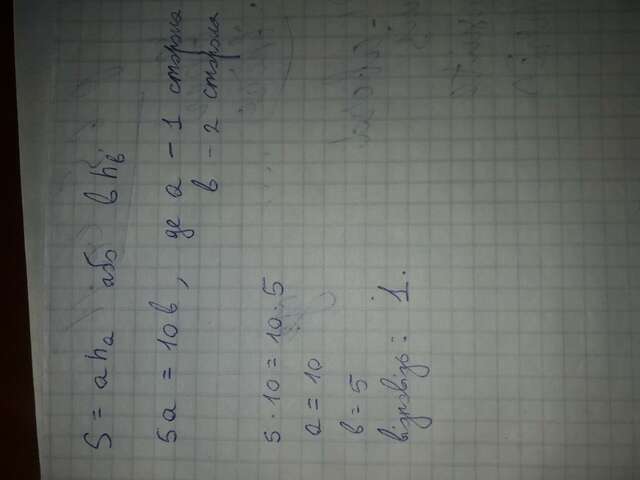 S = aha або bhb
5a = 10b, де a - 1 сторона
b - 2 сторона
5 · 10 = 10 · 5
a = 10
b = 5
відповідь: 1.